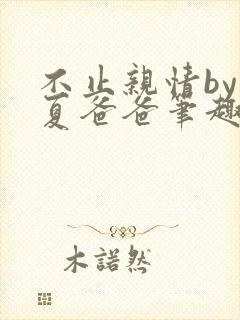 不止親情by
夏爸爸筆趣
木諾然